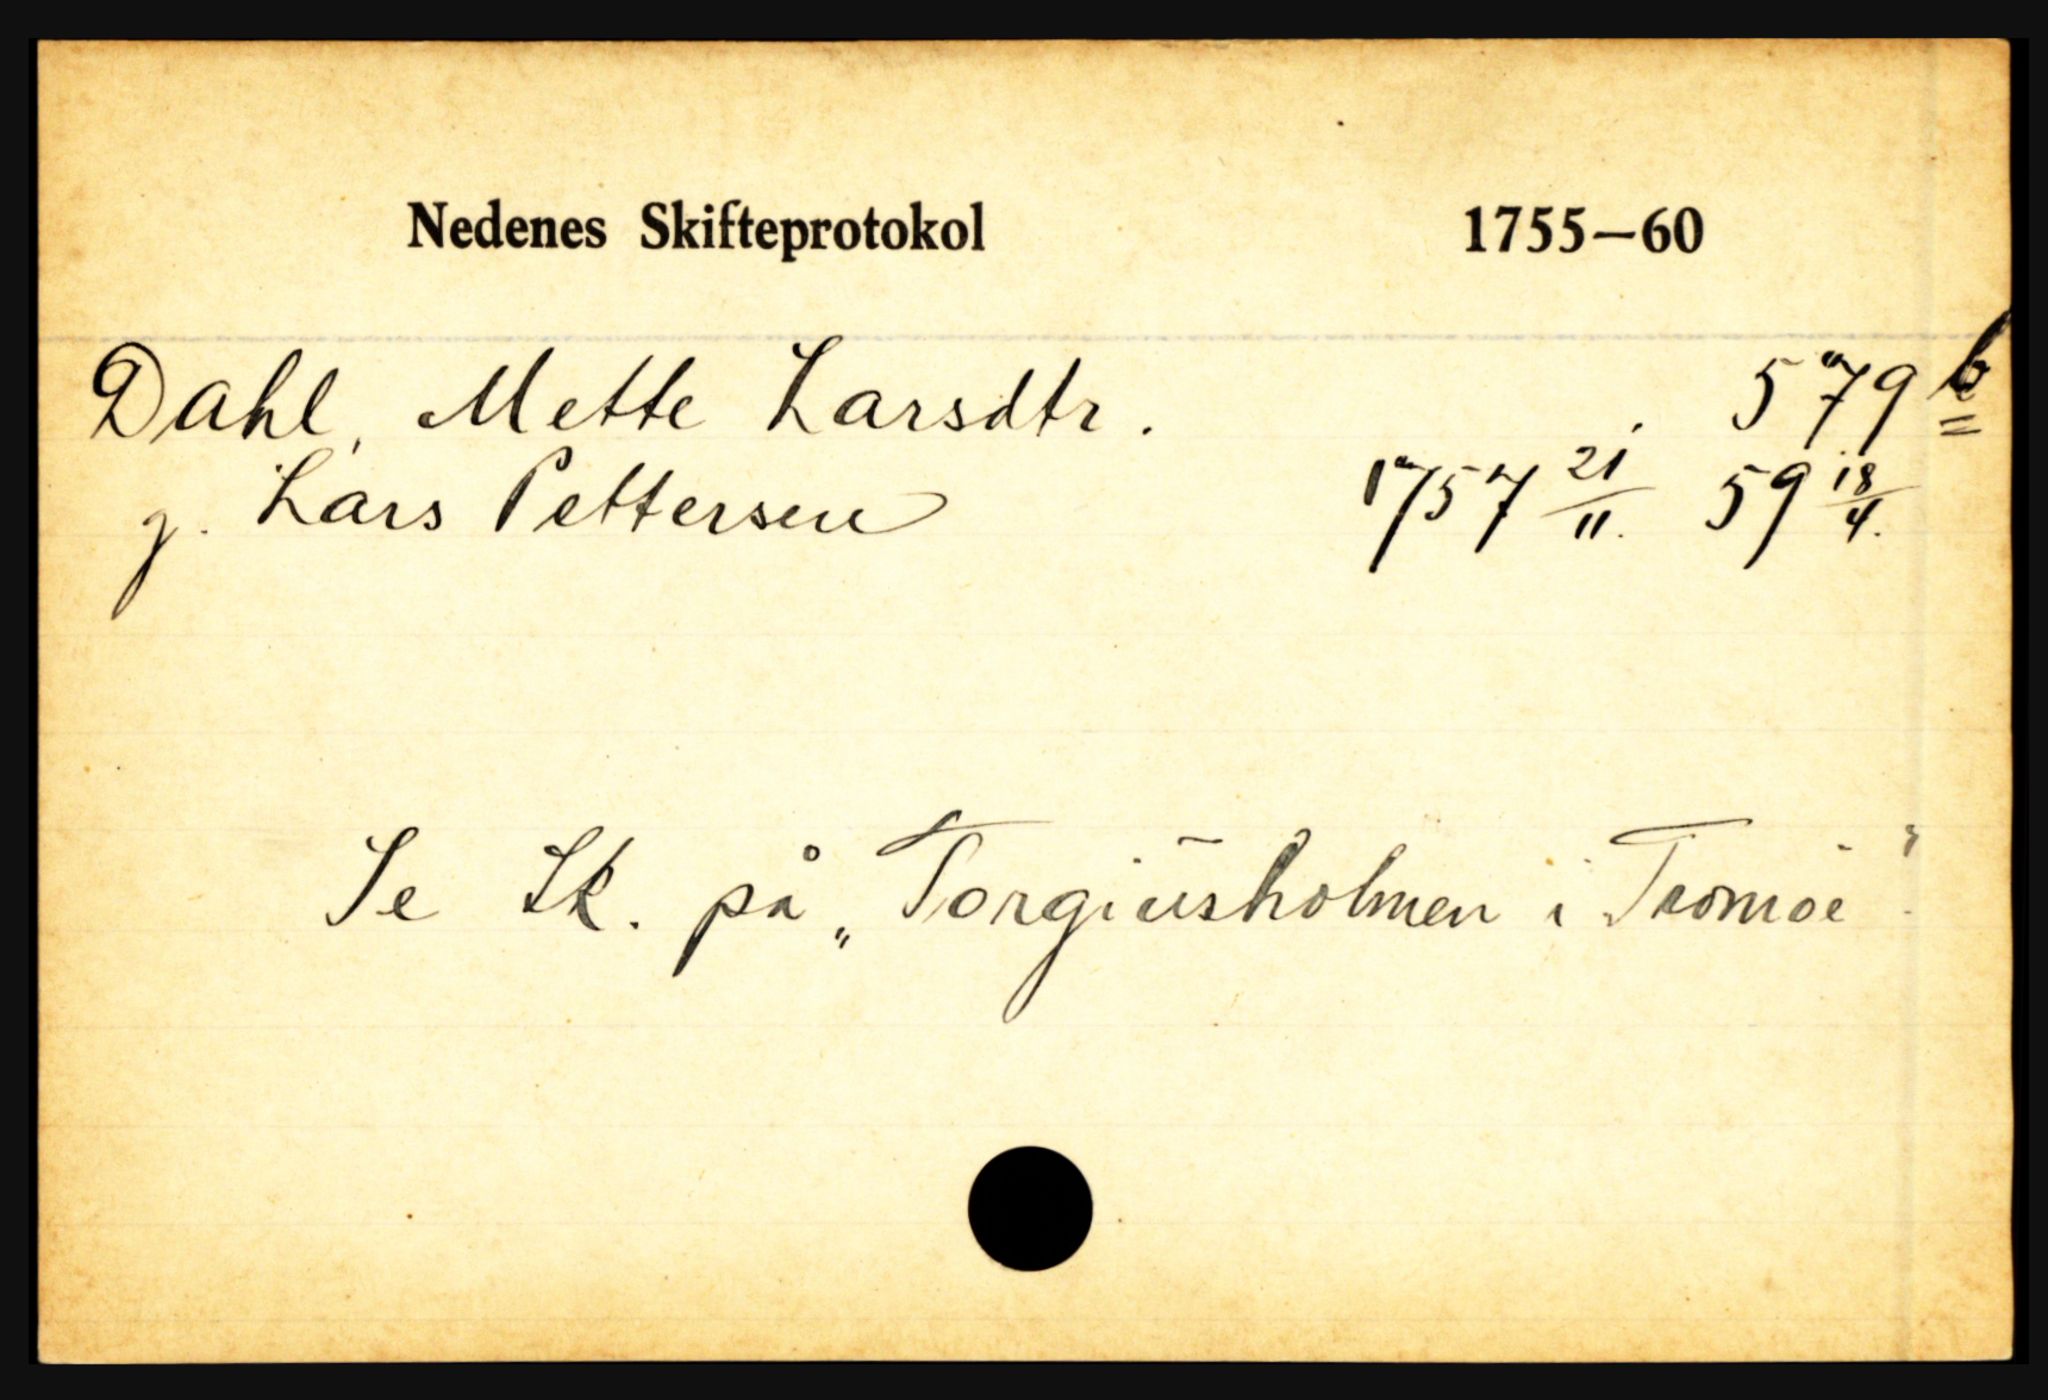 Nedenes Skifteprotokol 1755—60
Dahl, Mette Larsdtr. 579 b
g. Lars Pettersen 1757 21/11. 59 18/4.
Se Sk. på „Torgiusholmen i Tromöe".